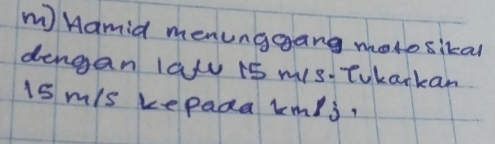 m) Hamid menunggang motosikal
dengan laju 15 m/s. Tukarkan
15 m/s kepada km/j.